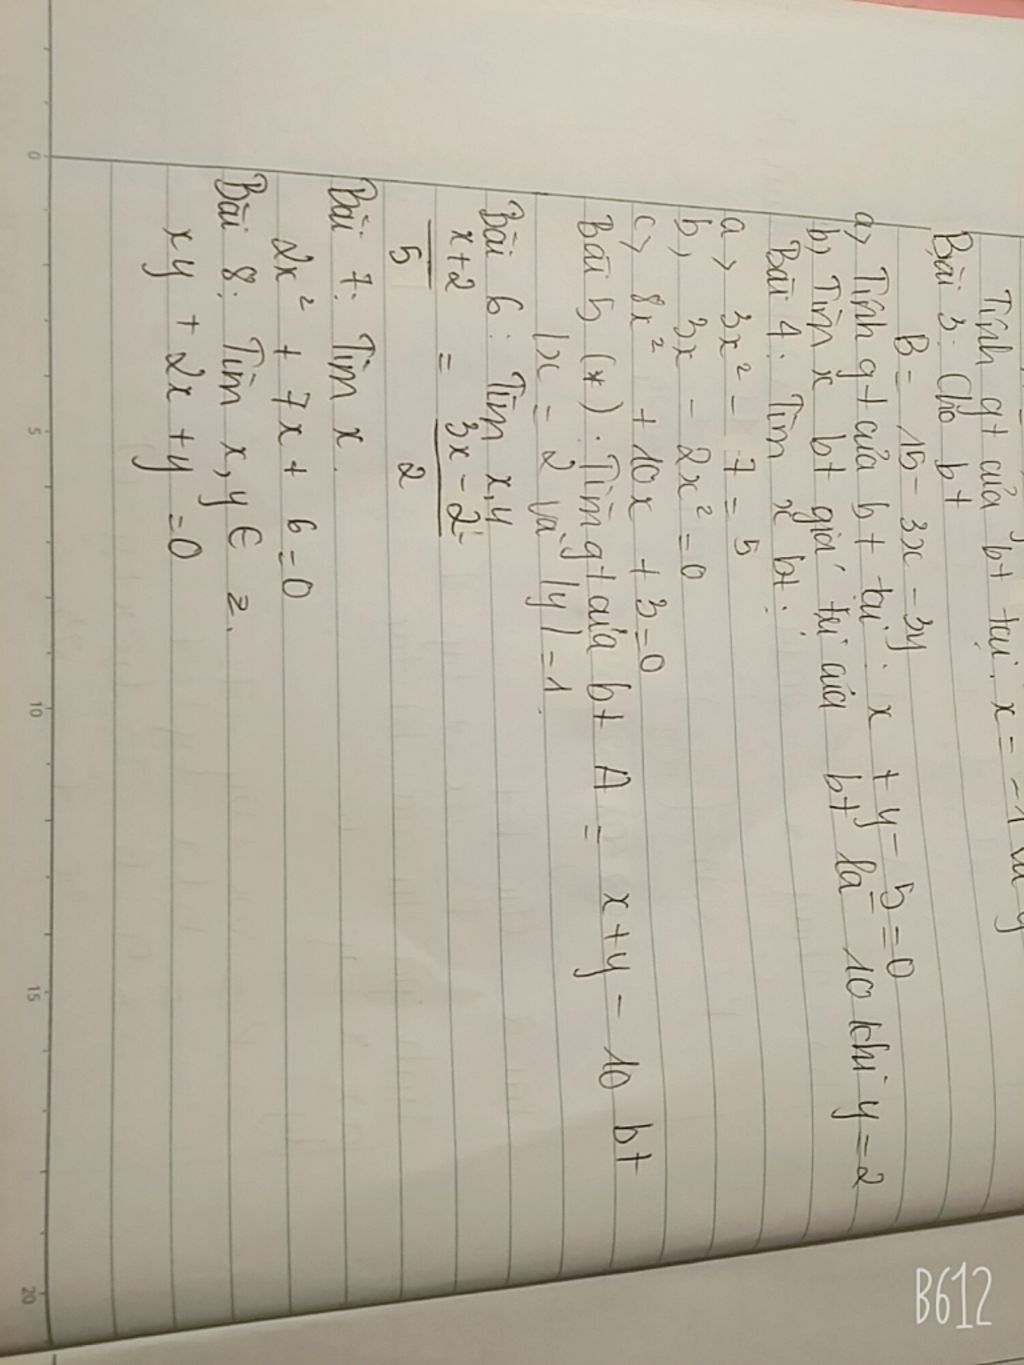 Tính gt của bt tại x = -1 và y
Bài 3: Cho bt
B = 15 - 3x - 3y
a, Tính gt của bt tại: x + y - 5 = 0
b, Tìm x bt giá trị của bt là 10 khi y = 2
Bài 4: Tìm x bt:
a, 3x² - 7 = 5
b, 3x - 2x² = 0
c, 8x² + 10x + 3 = 0
Bài 5 (*). Tìm gt của bt A = x + y - 10 bt
|x = 2 và |y| = 1.
Bài 6: Tìm x, y
x+2 = 3x - 2
5 2
Bài 7: Tìm x.
2x² + 7x + 6 = 0
Bài 8: Tìm x, y ∈ z.
xy + 2x + y = 0
0 5 10 15 20
B612